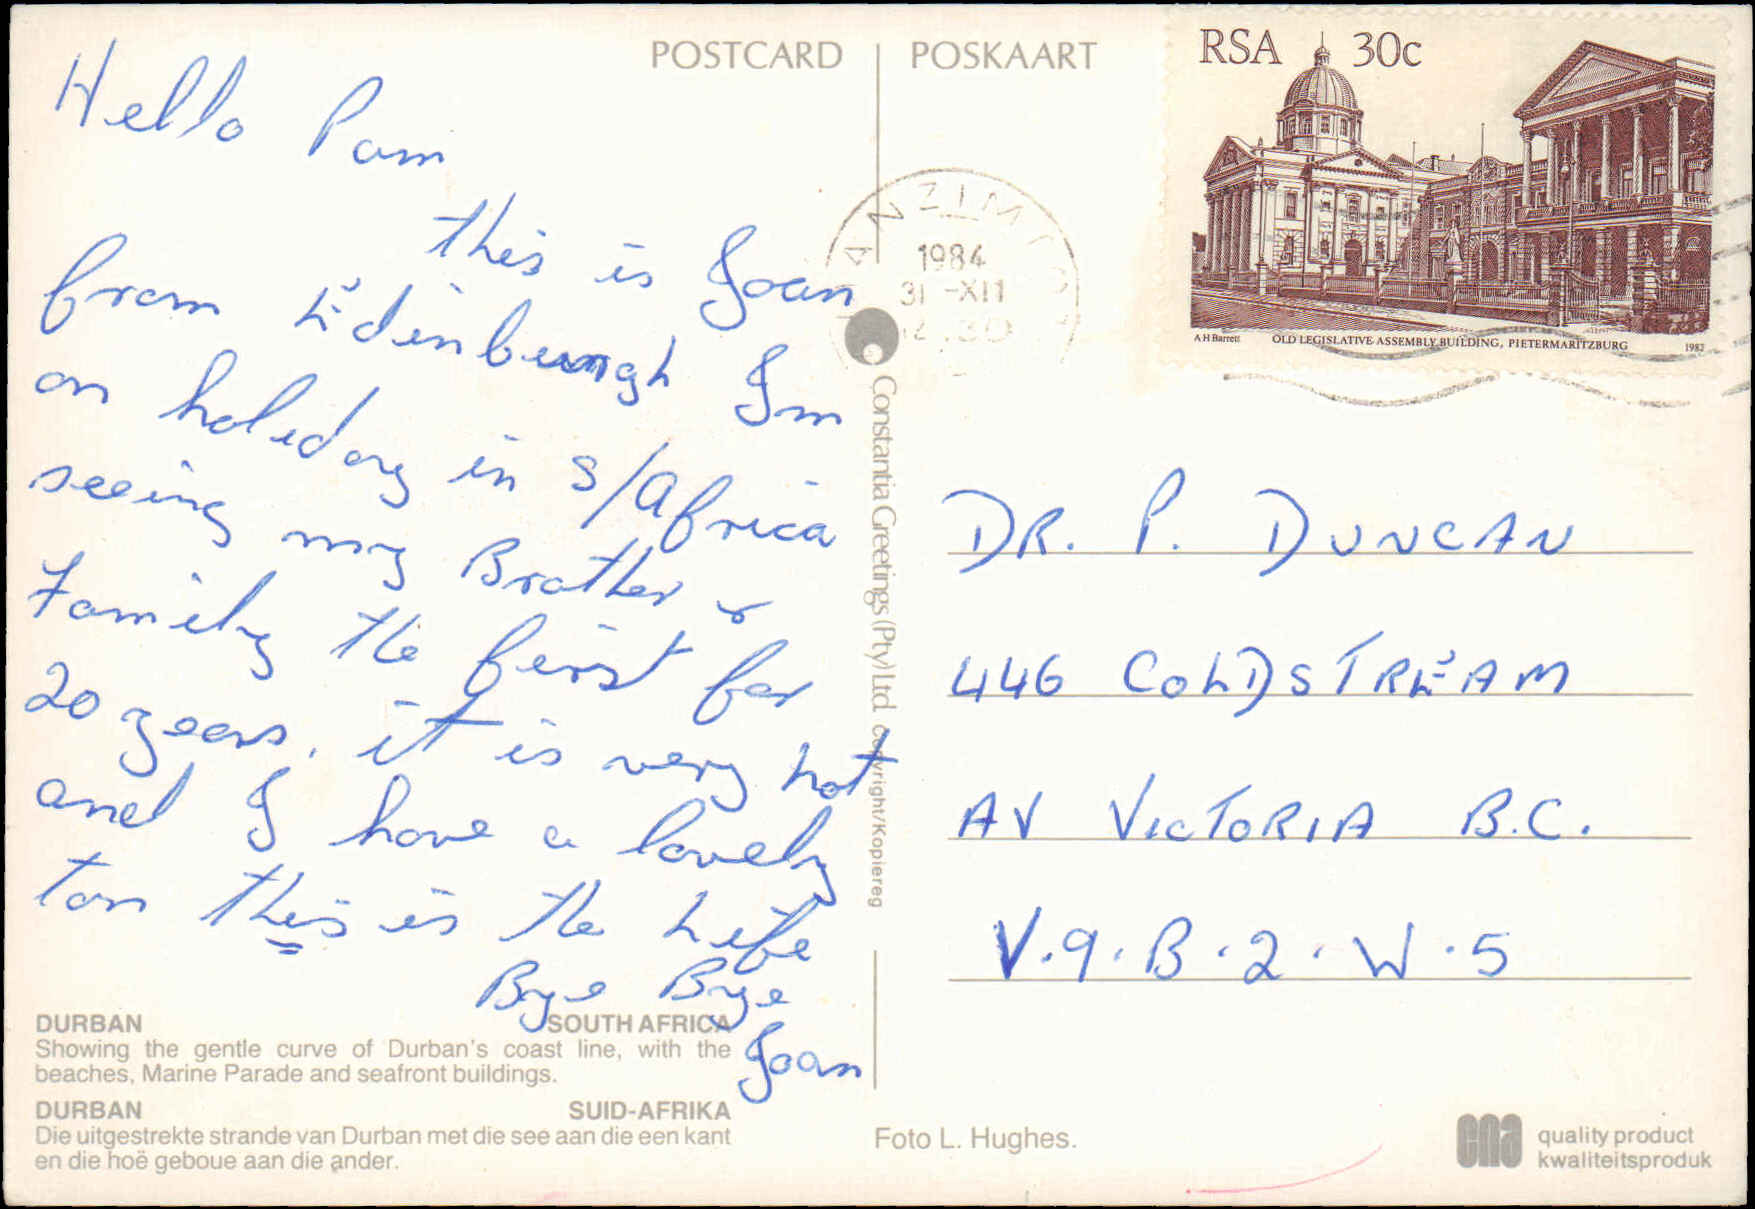 POSTCARD POSKAART
RSA 30c
A H Barrett OLD LEGISLATIVE ASSEMBLY BUILDING, PIETERMARITZBURG 1982
1984
31 -XII
Hello Pam
this is Joan
from Edinburgh Im
on holiday in S/Africa
seeing my Brother &
Family the first for
20 years. it is very hot
and I have a lovely
tan this is the Life
Bye Bye
Joan
Constantia Greetings (Pty) Ltd. copyright/Kopiereg
DR. P. DUNCAN
446 COLDSTREAM
AV VICTORIA B.C.
V.9.B.2.W.5
DURBAN SOUTH AFRICA
Showing the gentle curve of Durban's coast line, with the
beaches, Marine Parade and seafront buildings.
DURBAN SUID-AFRIKA
Die uitgestrekte strande van Durban met die see aan die een kant
en die hoë geboue aan die ander.
Foto L. Hughes.
cna quality product
kwaliteitsproduk